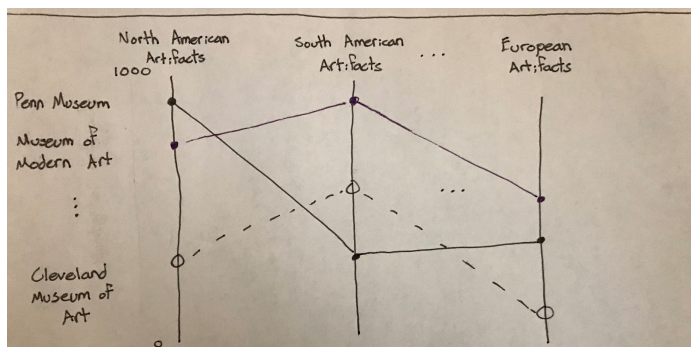 North American
Artifacts
South American
Artifacts
...
European
Artifacts
1000
Penn Museum
Museum of
Modern Art
...
Cleveland
Museum of
Art
...
0